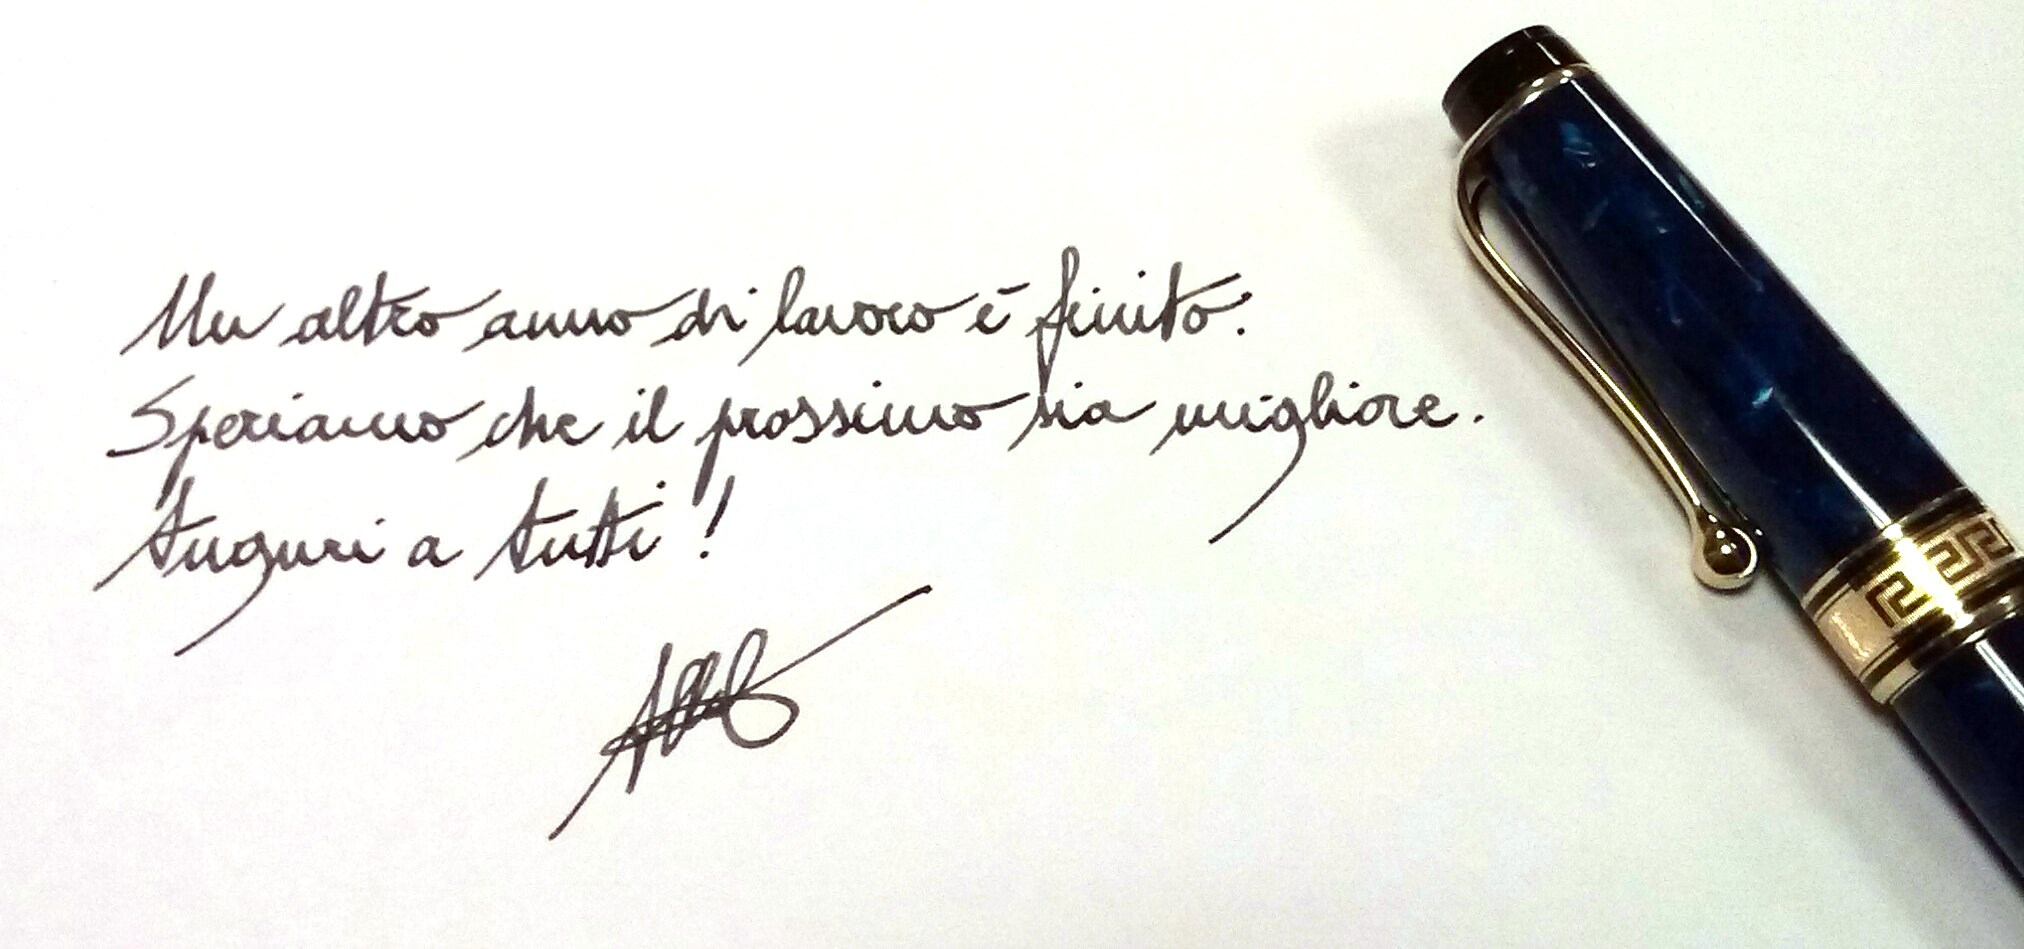 Un altro anno di lavoro è finito.
Speriamo che il prossimo sia migliore.
Auguri a tutti!